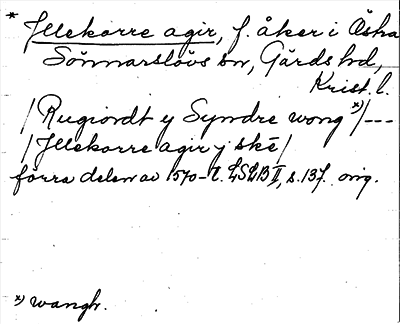 * Jllekorre agir, f. åker i Östra
Sönnarslövs sn, Gärds hd,
Krist. l.
/Rugiordt y Syndre wong x)/---
/Jllekorre agir y skē/
förra delen av 1570-t. LSLB II, s. 137. orig.
x) wangh.